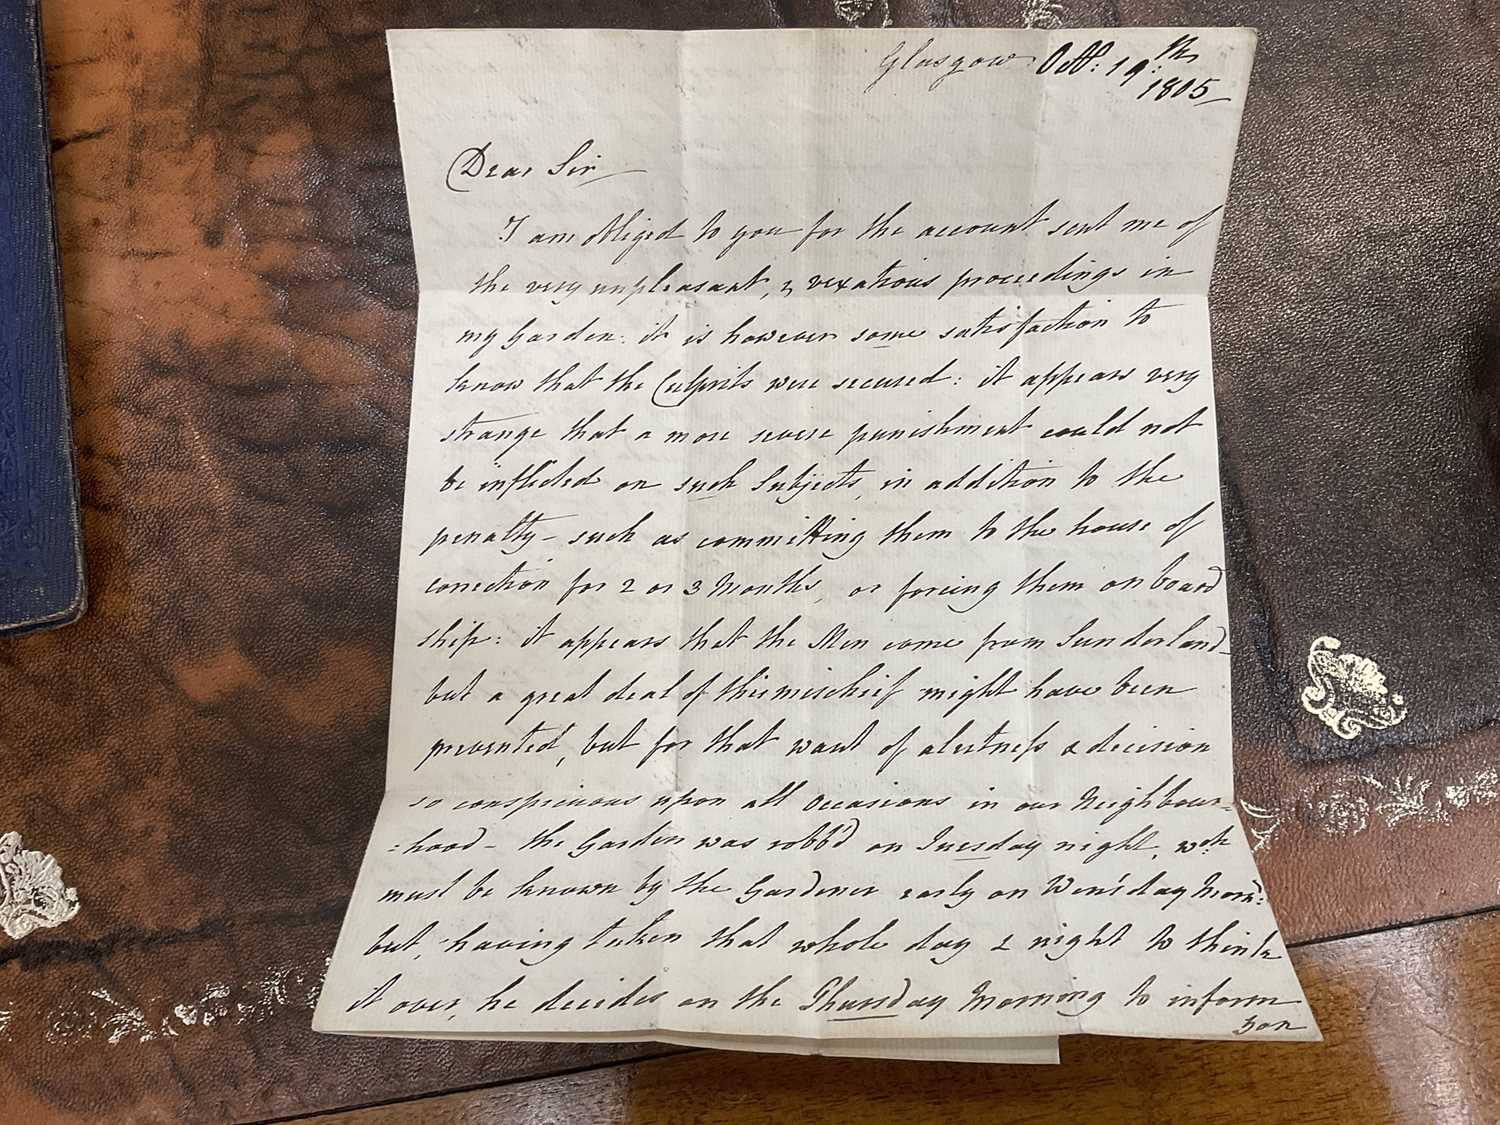 Glasgow Octr: 19:th
1805
Dear Sir
I am obliged to you for the account sent me of
the very unpleasant, & vexatious proceedings in
my Garden: it is however some satisfaction to
know that the Culprits were secured: it appears very
strange that a more severe punishment could not
be inflicted on such Subjects, in addition to the
penalty - such as committing them to the house of
correction for 2 or 3 Months, or forcing them on board
ship: it appears that the Men come from Sunderland
but a great deal of this mischief might have been
prevented, but for that want of alertness & decision
so conspicuous upon all occasions in our Neighbour=
=hood - the Garden was robb'd on Tuesday night, wch
must be known by the Gardener early on Wen'sday Morng:
but, having taken that whole day & night to think
it over, he decides on the Thursday Morning to inform
you